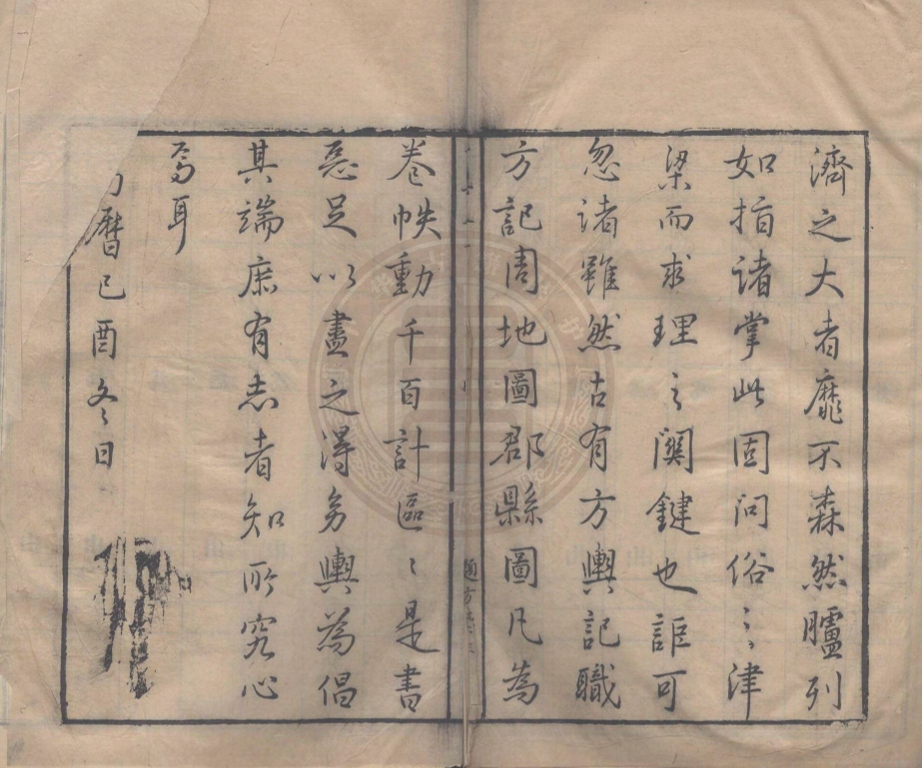 濟之大者靡不森然臚列
如指諸掌此固問俗之津
梁而求理之關鍵也詎可
忽諸雖然古有方輿記職
方記周地圖郡縣圖凡為
卷帙動千百計區〻是書
惡足以盡之得毋輿為倡
其端庶有志者知所究心
焉耳
曆己酉冬日